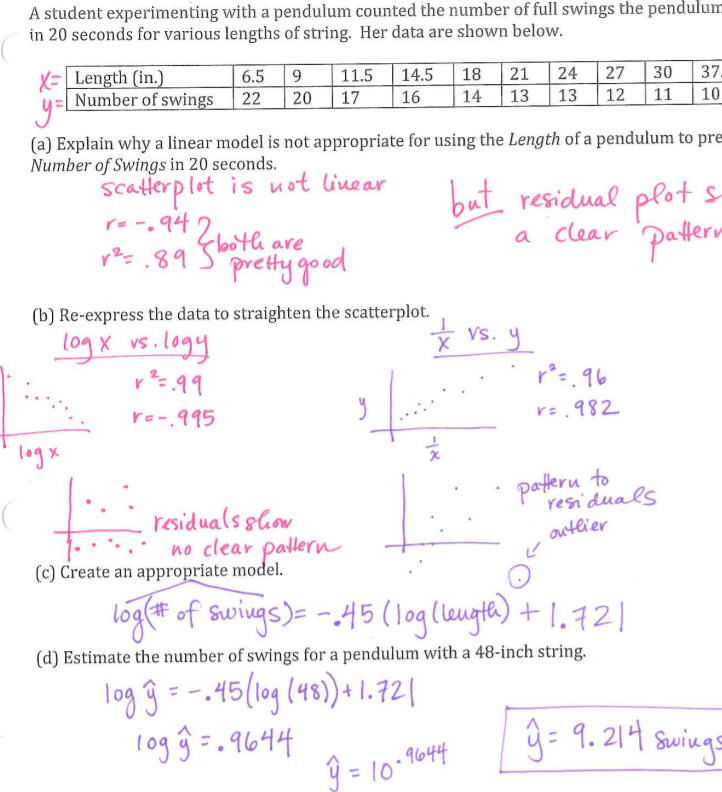 A student experimenting with a pendulum counted the number of full swings the pendulum
in 20 seconds for various lengths of string. Her data are shown below.
x= Length (in.) 6.5 9 11.5 14.5 18 21 24 27 30 37.
y= Number of swings 22 20 17 16 14 13 13 12 11 10
(a) Explain why a linear model is not appropriate for using the Length of a pendulum to pre
Number of Swings in 20 seconds.
scatterplot is not linear
r = -.94
r²= .89
both are
pretty good
but residual plot s
a clear pattern
(b) Re-express the data to straighten the scatterplot.
log x vs. log y
r²=.99
r=-.995
log x
1/x vs. y
r²=.96
r=.982
y
1/x
residuals show
no clear pattern
pattern to
residuals
outlier
(c) Create an appropriate model.
log(# of swings)= -.45 (log(length) + 1.721
(d) Estimate the number of swings for a pendulum with a 48-inch string.
log ŷ = -.45(log (48))+1.721
log ŷ = .9644
ŷ = 10^.9644
ŷ = 9.214 swings